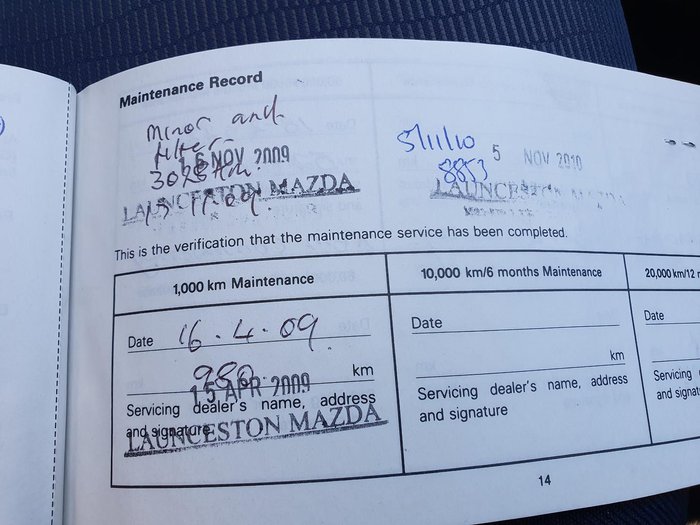 Maintenance Record
Minor and
filter
16 NOV 2009
LAUNCESTON MAZDA
5/11/10
5 NOV 2010
8853
LAUNCESTON MAZDA
This is the verification that the maintenance service has been completed.
1,000 km Maintenance
10,000 km/6 months Maintenance
20,000 km/12
Date 16.4.09
Date
Date
980 km
km
15 APR 2009
Servicing dealer's name, address
and signature
LAUNCESTON MAZDA
Servicing dealer's name, address
and signature
Servicing
and signat
14